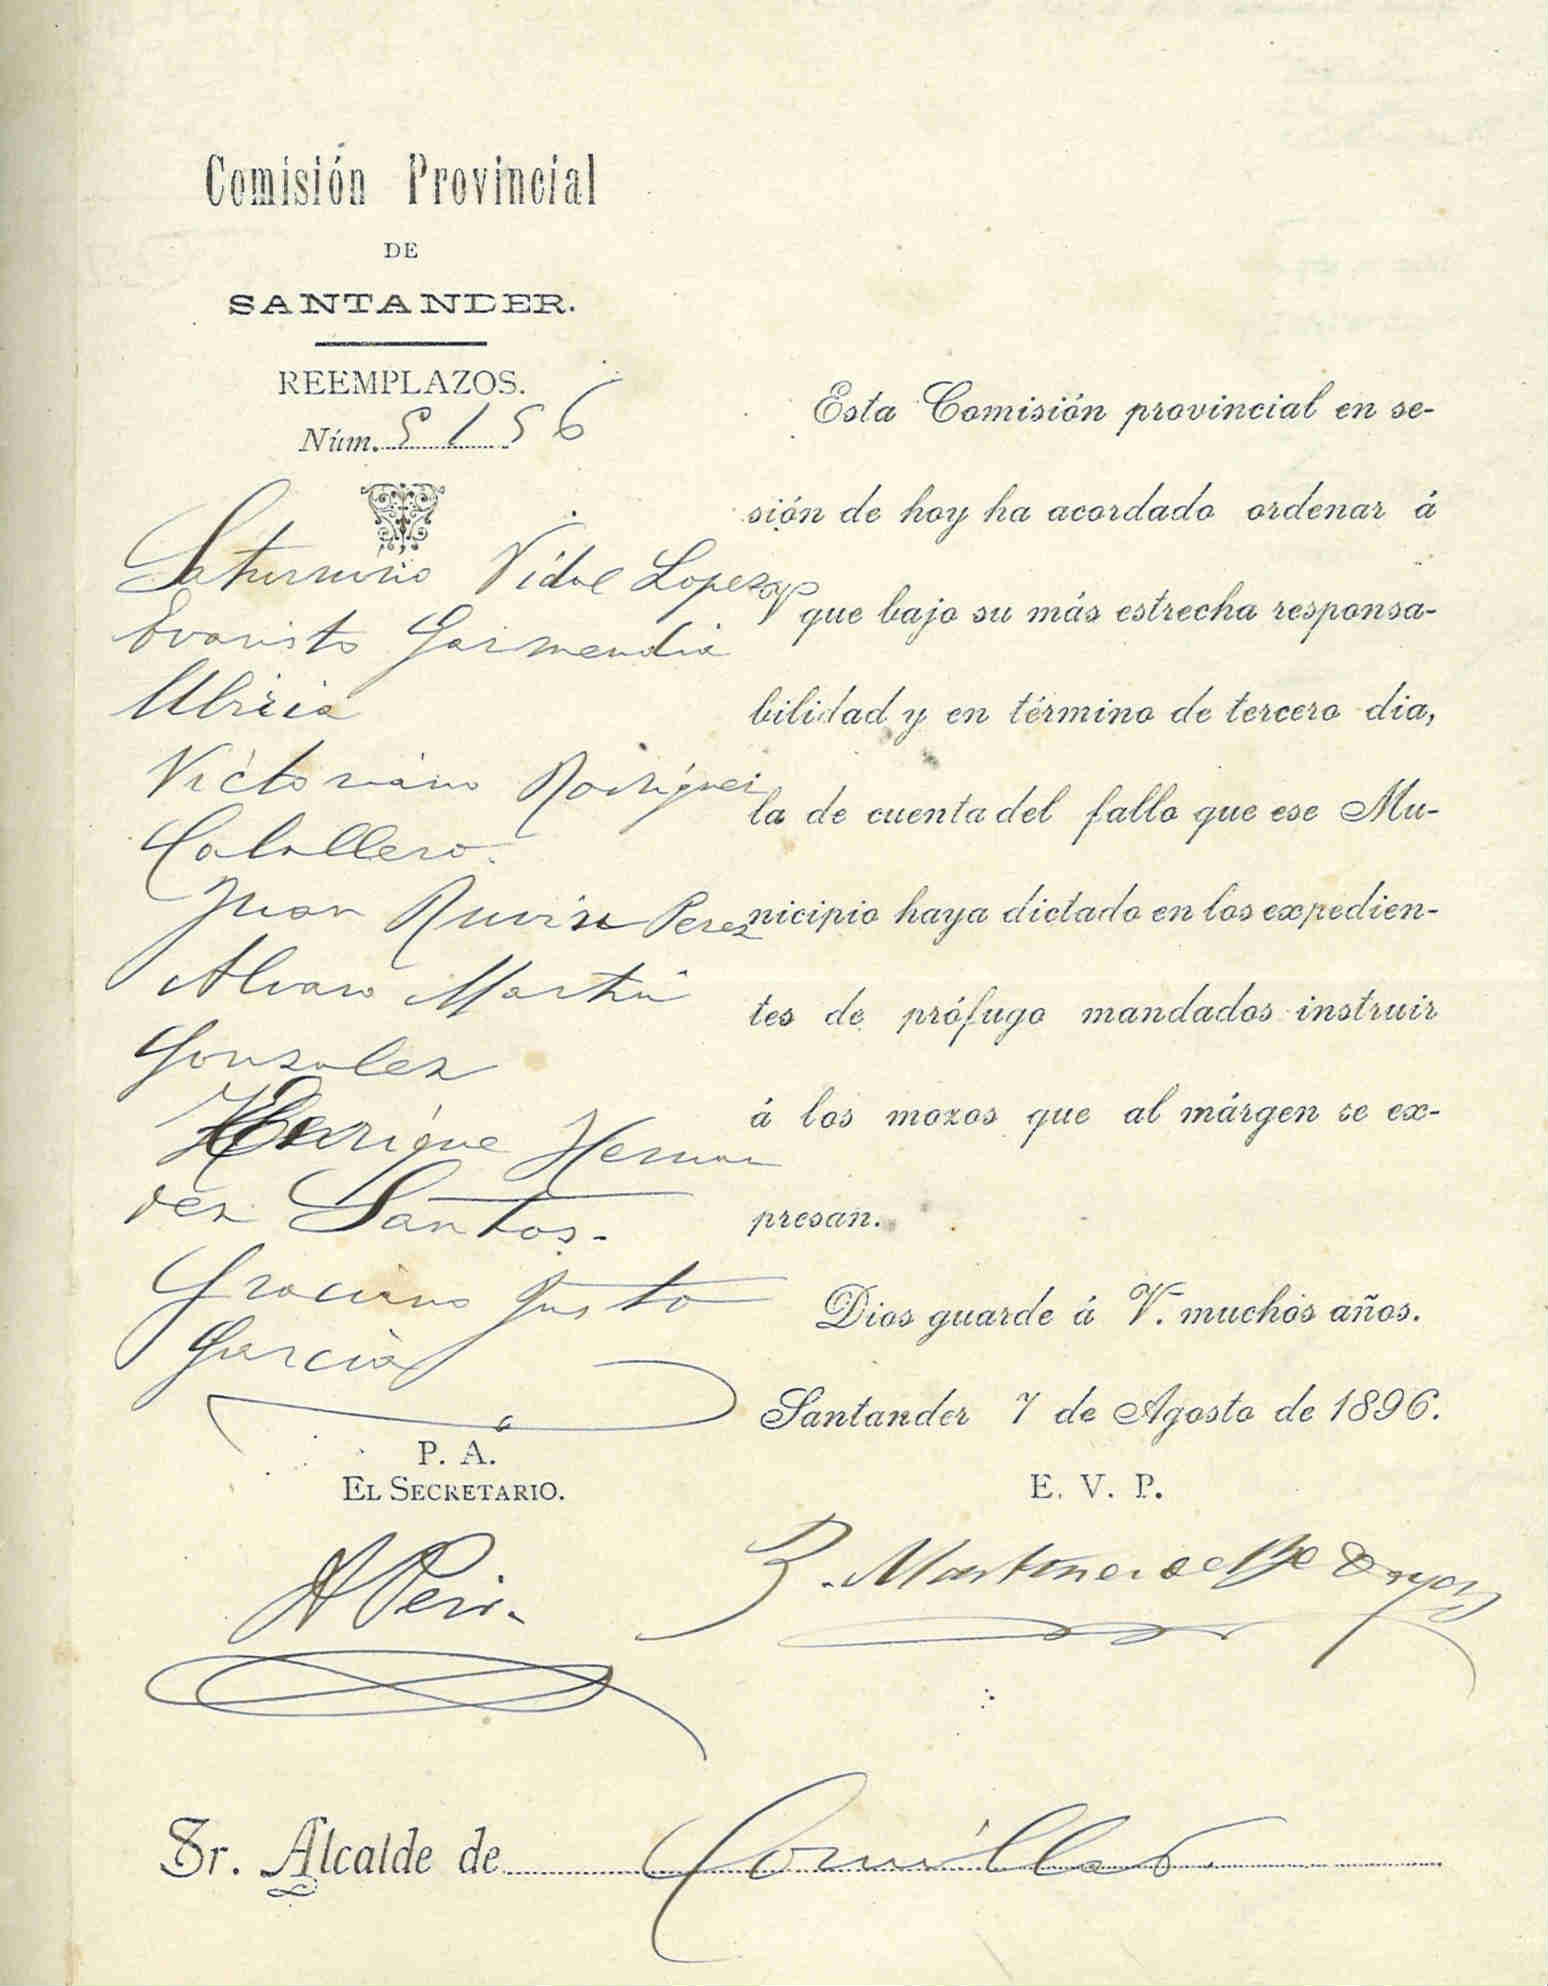 Comisión Provincial
DE
SANTANDER.
REEMPLAZOS.
Núm. 5156
Saturnino Vidal Lopez
Evaristo Garmendia
Ubricia
Victoriano Rodriguez
Caballero.
Juan Perez
Alvaro Martin
Gonzalez
Enrique Hernan
dez Santos.
Graciano Justo
Garcia
Esta Comisión provincial en se-
sión de hoy ha acordado ordenar á
V que bajo su más estrecha responsa-
bilidad y en término de tercero dia,
la de cuenta del fallo que ese Mu-
nicipio haya dictado en los expedien-
tes de prófugo mandados instruir
á los mozos que al márgen se ex-
presan.
Dios guarde á V. muchos años.
Santander 7 de Agosto de 1896.
P. A.
EL SECRETARIO.
E. V. P.
Sr. Alcalde de Comillas.